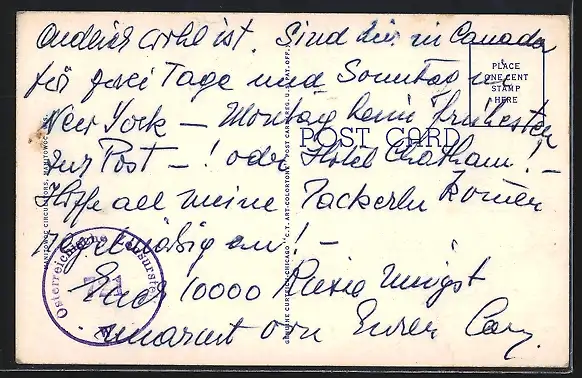 endlich wohl ist. Sind hier in Canada
für zwei Tage und Sonntag in
New York – Montag beim frühesten
zur Post – ! oder Hotel Chatham! –
Hoffe all meine Packerln kommen
regelmäßig an! –
Euch 10000
umarmt von Eurer
PLACE
ONE CENT
STAMP
HERE
POST CARD
GENUINE CURTEICH-CHICAGO "C.T. ART-COLORTONE" POST CARD (REG. U.S. PAT. OFF.)
Österreichische Zensurstelle